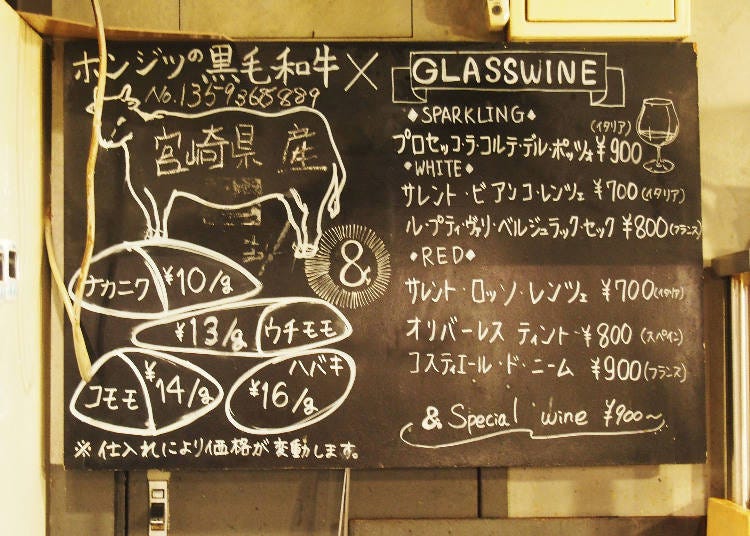 ホンジツの黒毛和牛×
No.1359368889
宮崎県産
ナカニク ¥10/g
¥13/g ウチモモ
コモモ ¥14/g
ハバキ ¥16/g
※仕入れにより価格が変動します。
&
GLASSWINE
◆SPARKLING◆
(イタリア)
プロセッコ・ラ・コルテ・デル・ポッツェ ¥900
◆WHITE◆
サレント・ビアンコ・レンツェ ¥700(イタリア)
ル・プティ・ヴァリ・ベルジュラック・セック ¥800(フランス)
◆RED◆
サレント・ロッソ・レンツェ ¥700(イタリア)
オリバーレス ティント・¥800(スペイン)
コスティエール・ド・ニーム ¥900(フランス)
& Special wine ¥900~